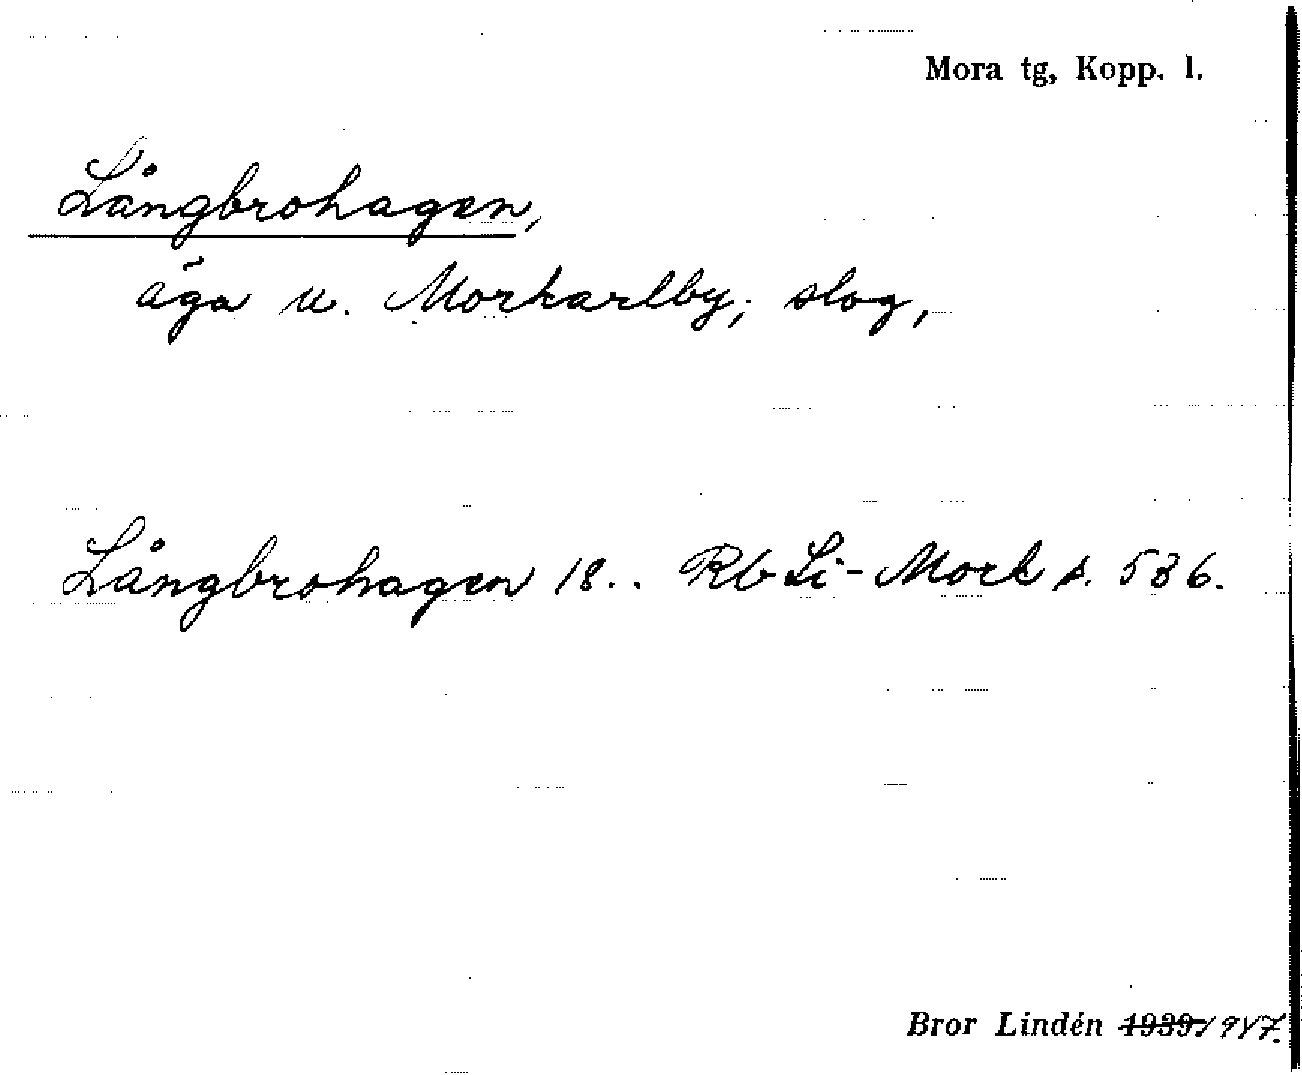 Mora tg, Kopp. l.
Långbrohagen,
äga u. Morkarlby; slog,
Långbrohagen 18.. Rb Li-Mork s. 536.
Bror Lindén 1939. 1947.